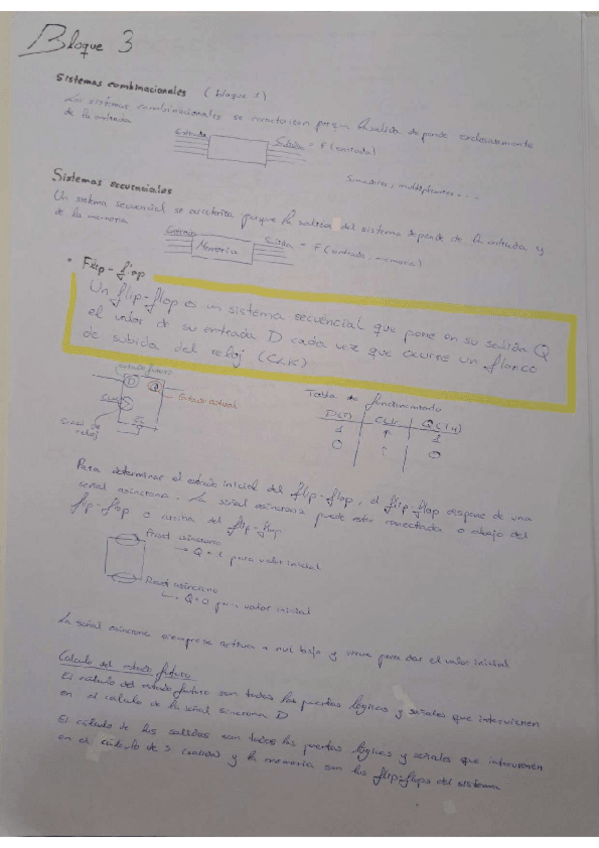 Bloque 3
Sistemas combinacionales (bloque 1)
Los sistemas combinacionales se caracterizan porque la salida depende exclusivamente
de la entrada
Entrada
Salida = F(entrada)
Sumadores, multiplexores...
Sistemas secuenciales
Un sistema secuencial se caracteriza porque la salida del sistema depende de la entrada y
de la memoria
Entrada
Memoria
Salida = F(entrada, memoria)
• Flip-flop
Un flip-flop es un sistema secuencial que pone en su salida Q
el valor de su entrada D cada vez que ocurre un flanco
de subida del reloj (CLK)
estado futuro
D
Q
Estado actual
CLK
Señal de
reloj
Tabla de funcionamiento
D(T) CLK
1 ↑ 1
0 ↑ 0
Para determinar el estado inicial del flip-flop, el flip-flop dispone de una
señal asíncrona. La señal asíncrona puede estar conectada a abajo del
flip-flop o arriba del flip-flop
Preset asíncrono
→ Q = 1 para valor inicial
Reset asíncrono
→ Q = 0 para valor inicial
La señal asíncrona siempre se activa a nivel bajo y sirve para dar el valor inicial
Cálculo del estado futuro
El cálculo del estado futuro son todas las puertas lógicas y señales que intervienen
en el cálculo de la señal síncrona D
El cálculo de las salidas son todas las puertas lógicas y señales que intervienen
en el cálculo de y la memoria son los flip-flops del sistema